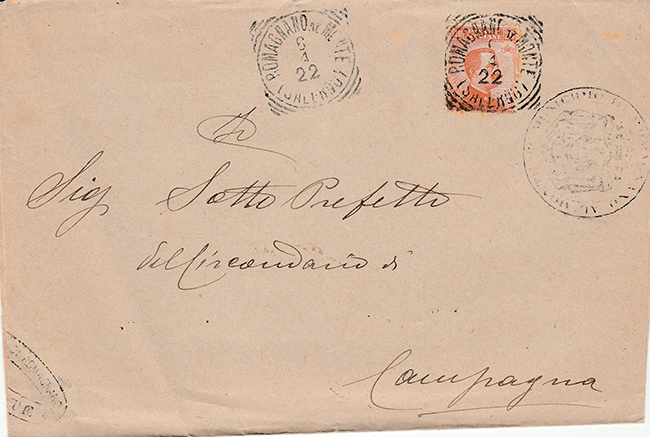 ROMAGNANO AL MONTE
6
1
22
(SALERNO)
ROMAGNANO AL MONTE
1
22
(SALERNO)
Sig Sotto Prefetto
del Circondario di
Campagna
DI ROMAGNANO